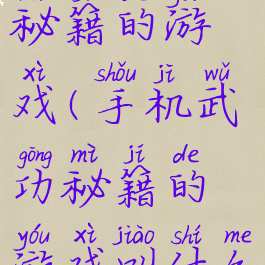 秘籍的游
xì shǒu jī wǔ
戏(手机武
gōng mì jí de
功秘籍的
yóu xì jiào shí me
游戏叫什么